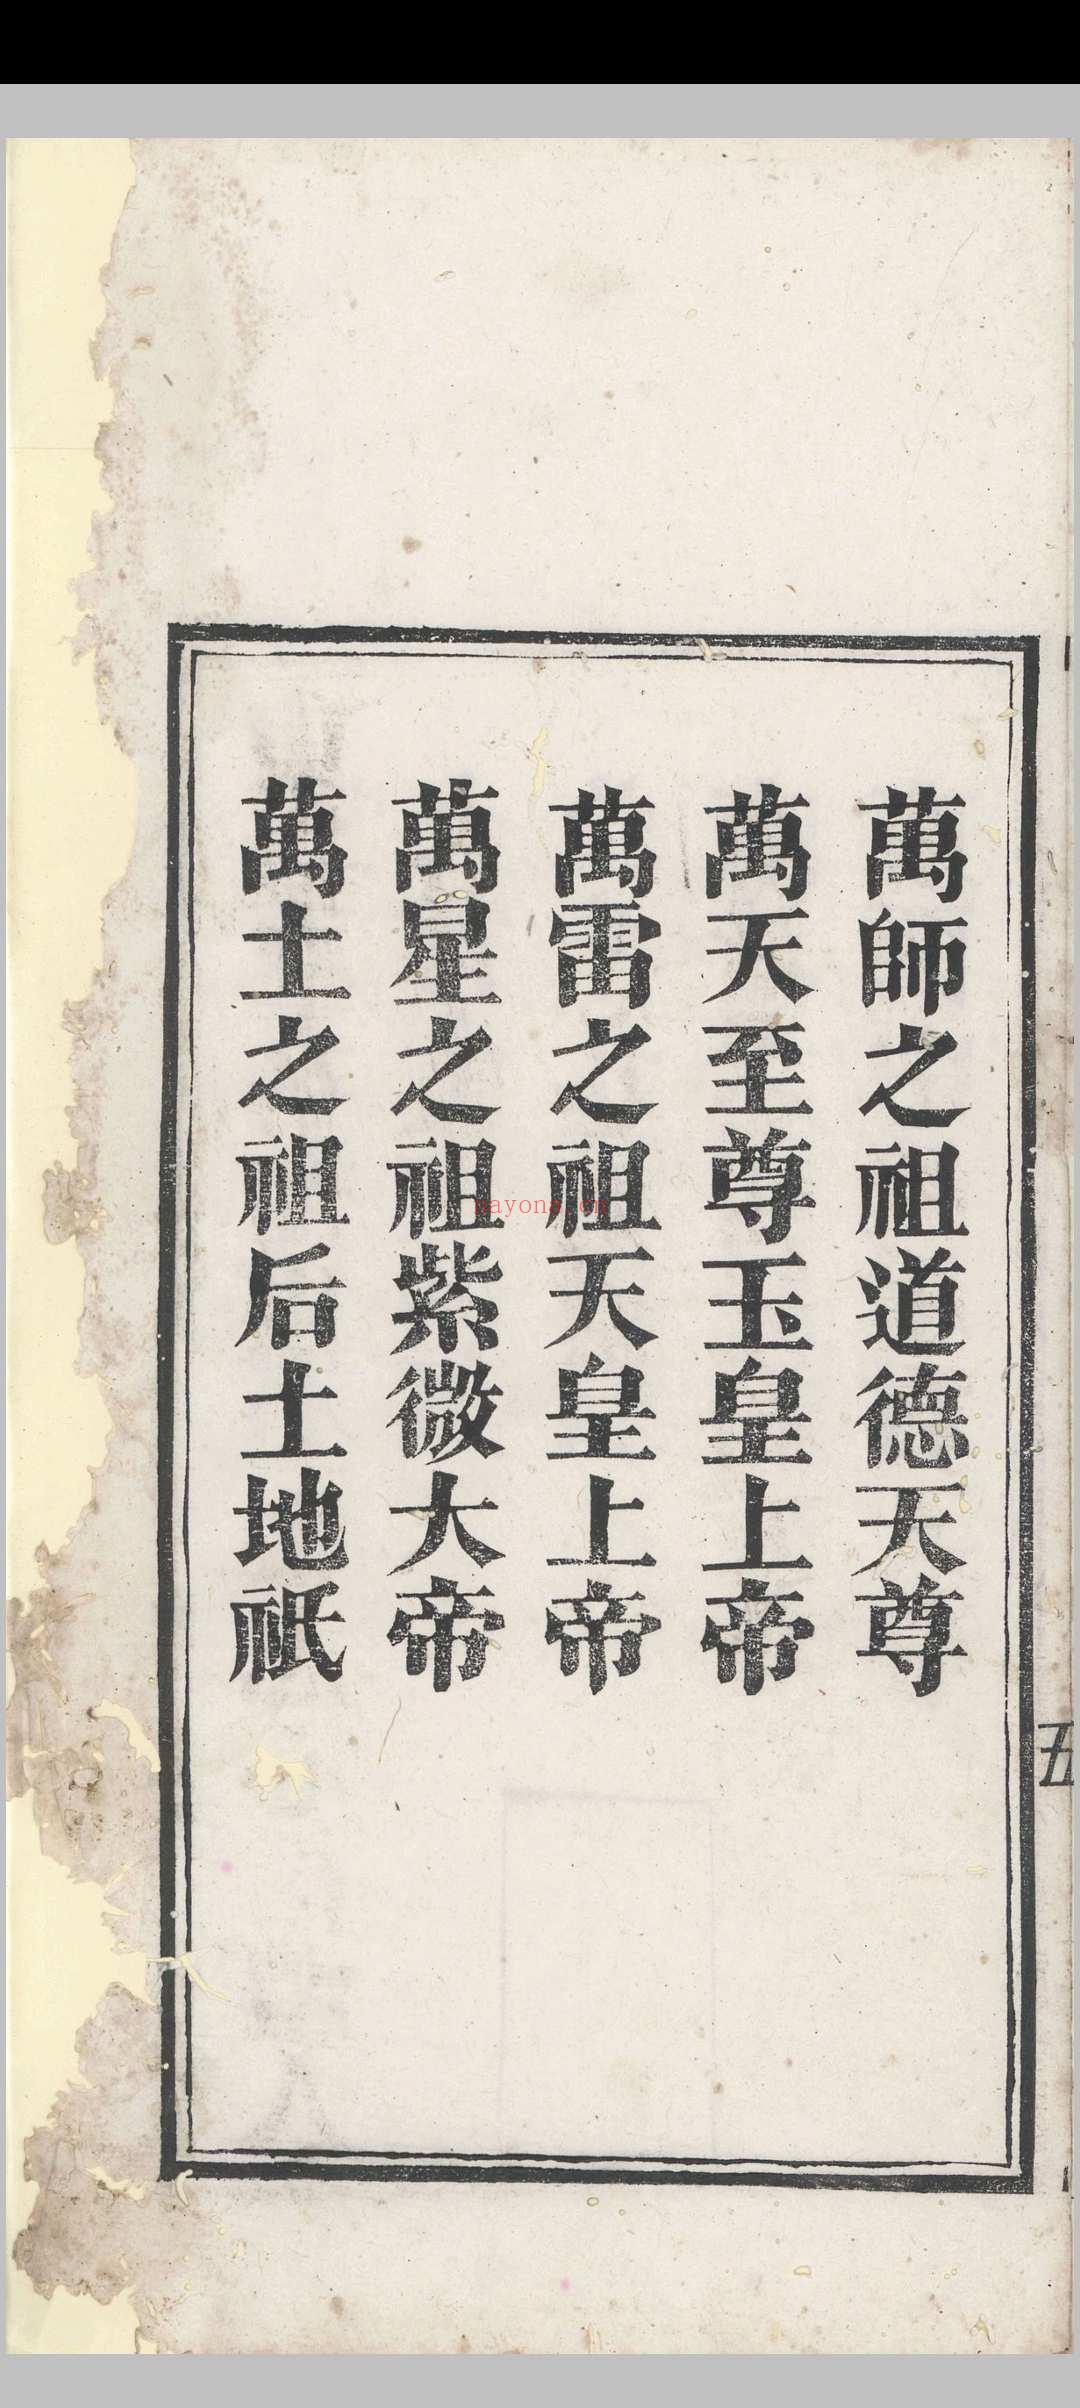 萬師之祖道德天尊
萬天至尊玉皇上帝
萬雷之祖天皇上帝
萬星之祖紫微大帝
萬土之祖后土地祇
五
nayona.cn